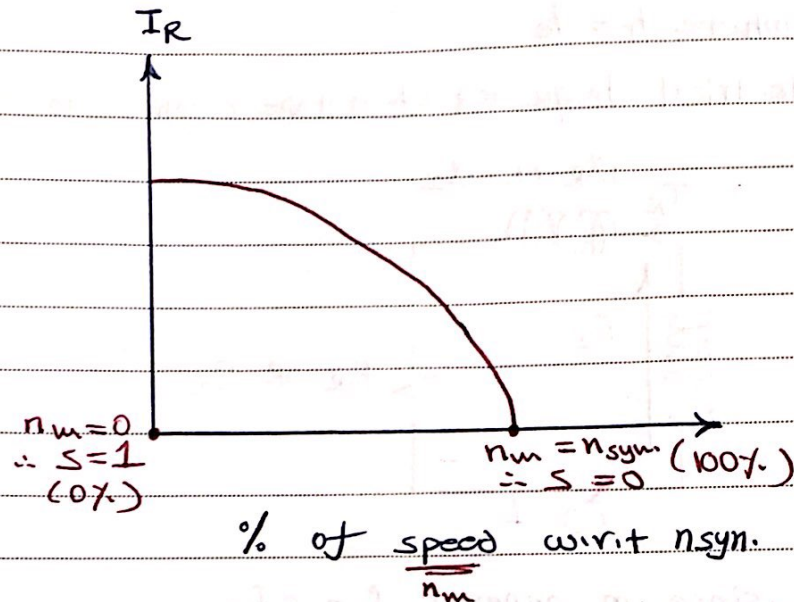 I_R
n_m = 0
∴ S = 1
(0%)
n_m = n_syn. (100%)
∴ S = 0
% of speed w.r.t n_syn.
n_m